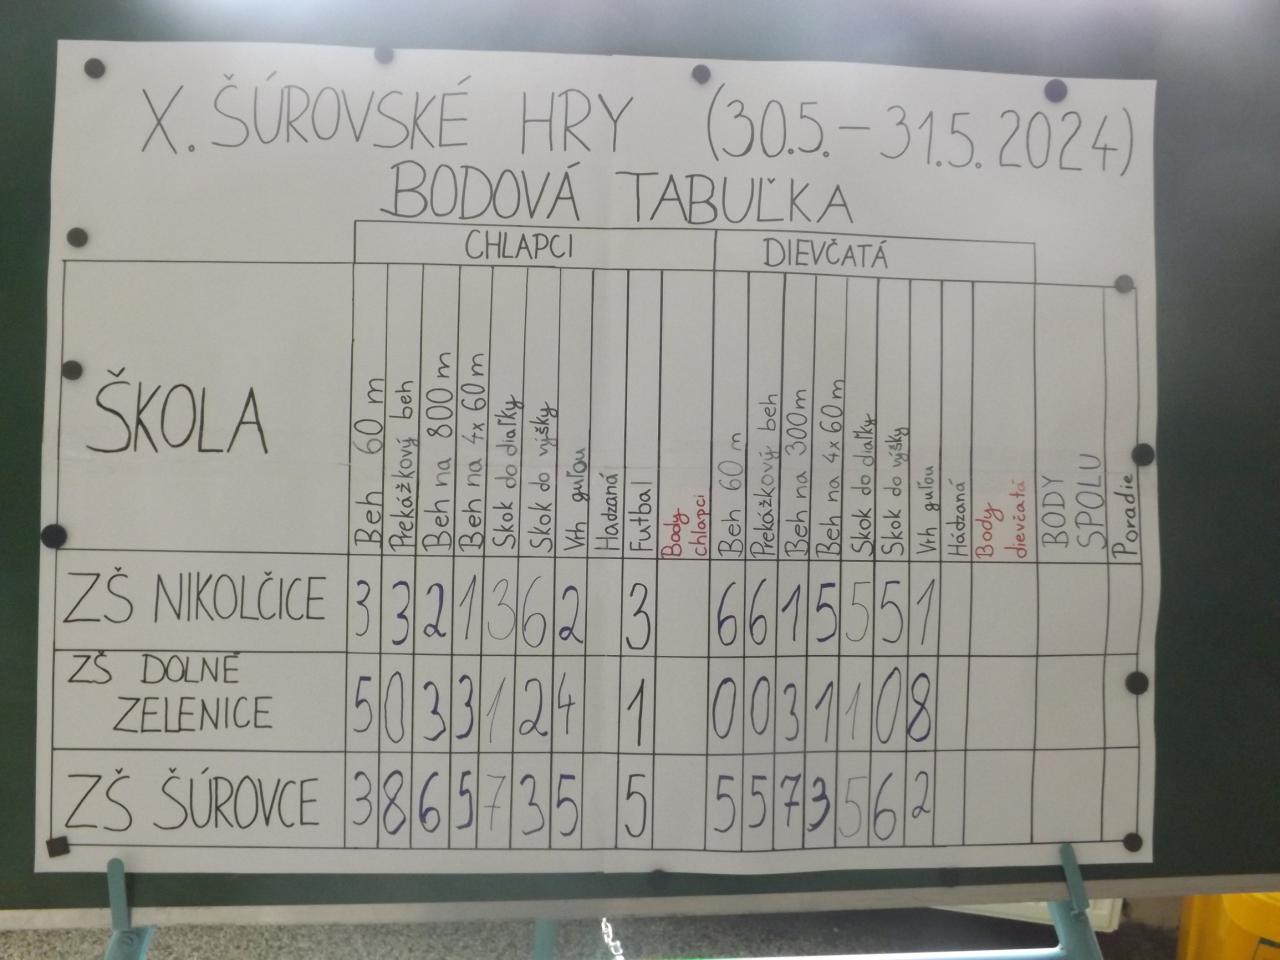 X. ŠÚROVSKÉ HRY (30.5.-31.5.2024)
BODOVÁ TABUĽKA
CHLAPCI DIEVČATÁ
ŠKOLA
Beh 60 m
Prekážkový beh
Beh na 800 m
Beh na 4x 60 m
Skok do diaľky
Skok do výšky
Vrh guľou
Hadzaná
Futbal
Body
chlapci
Beh 60 m
Prekážkový beh
Beh na 300 m
Beh na 4x 60 m
Skok do diaľky
Skok do výšky
Vrh guľou
Hádzaná
Body
dievčatá
BODY
SPOLU
Poradie
ZŠ NIKOLČICE 3 3 2 1 3 6 2 3 6 6 1 5 5 5 1
ZŠ DOLNÉ
ZELENICE 5 0 3 3 1 2 4 1 0 0 3 1 1 0 8
ZŠ ŠÚROVCE 3 8 6 5 7 3 5 5 5 5 7 3 5 6 2